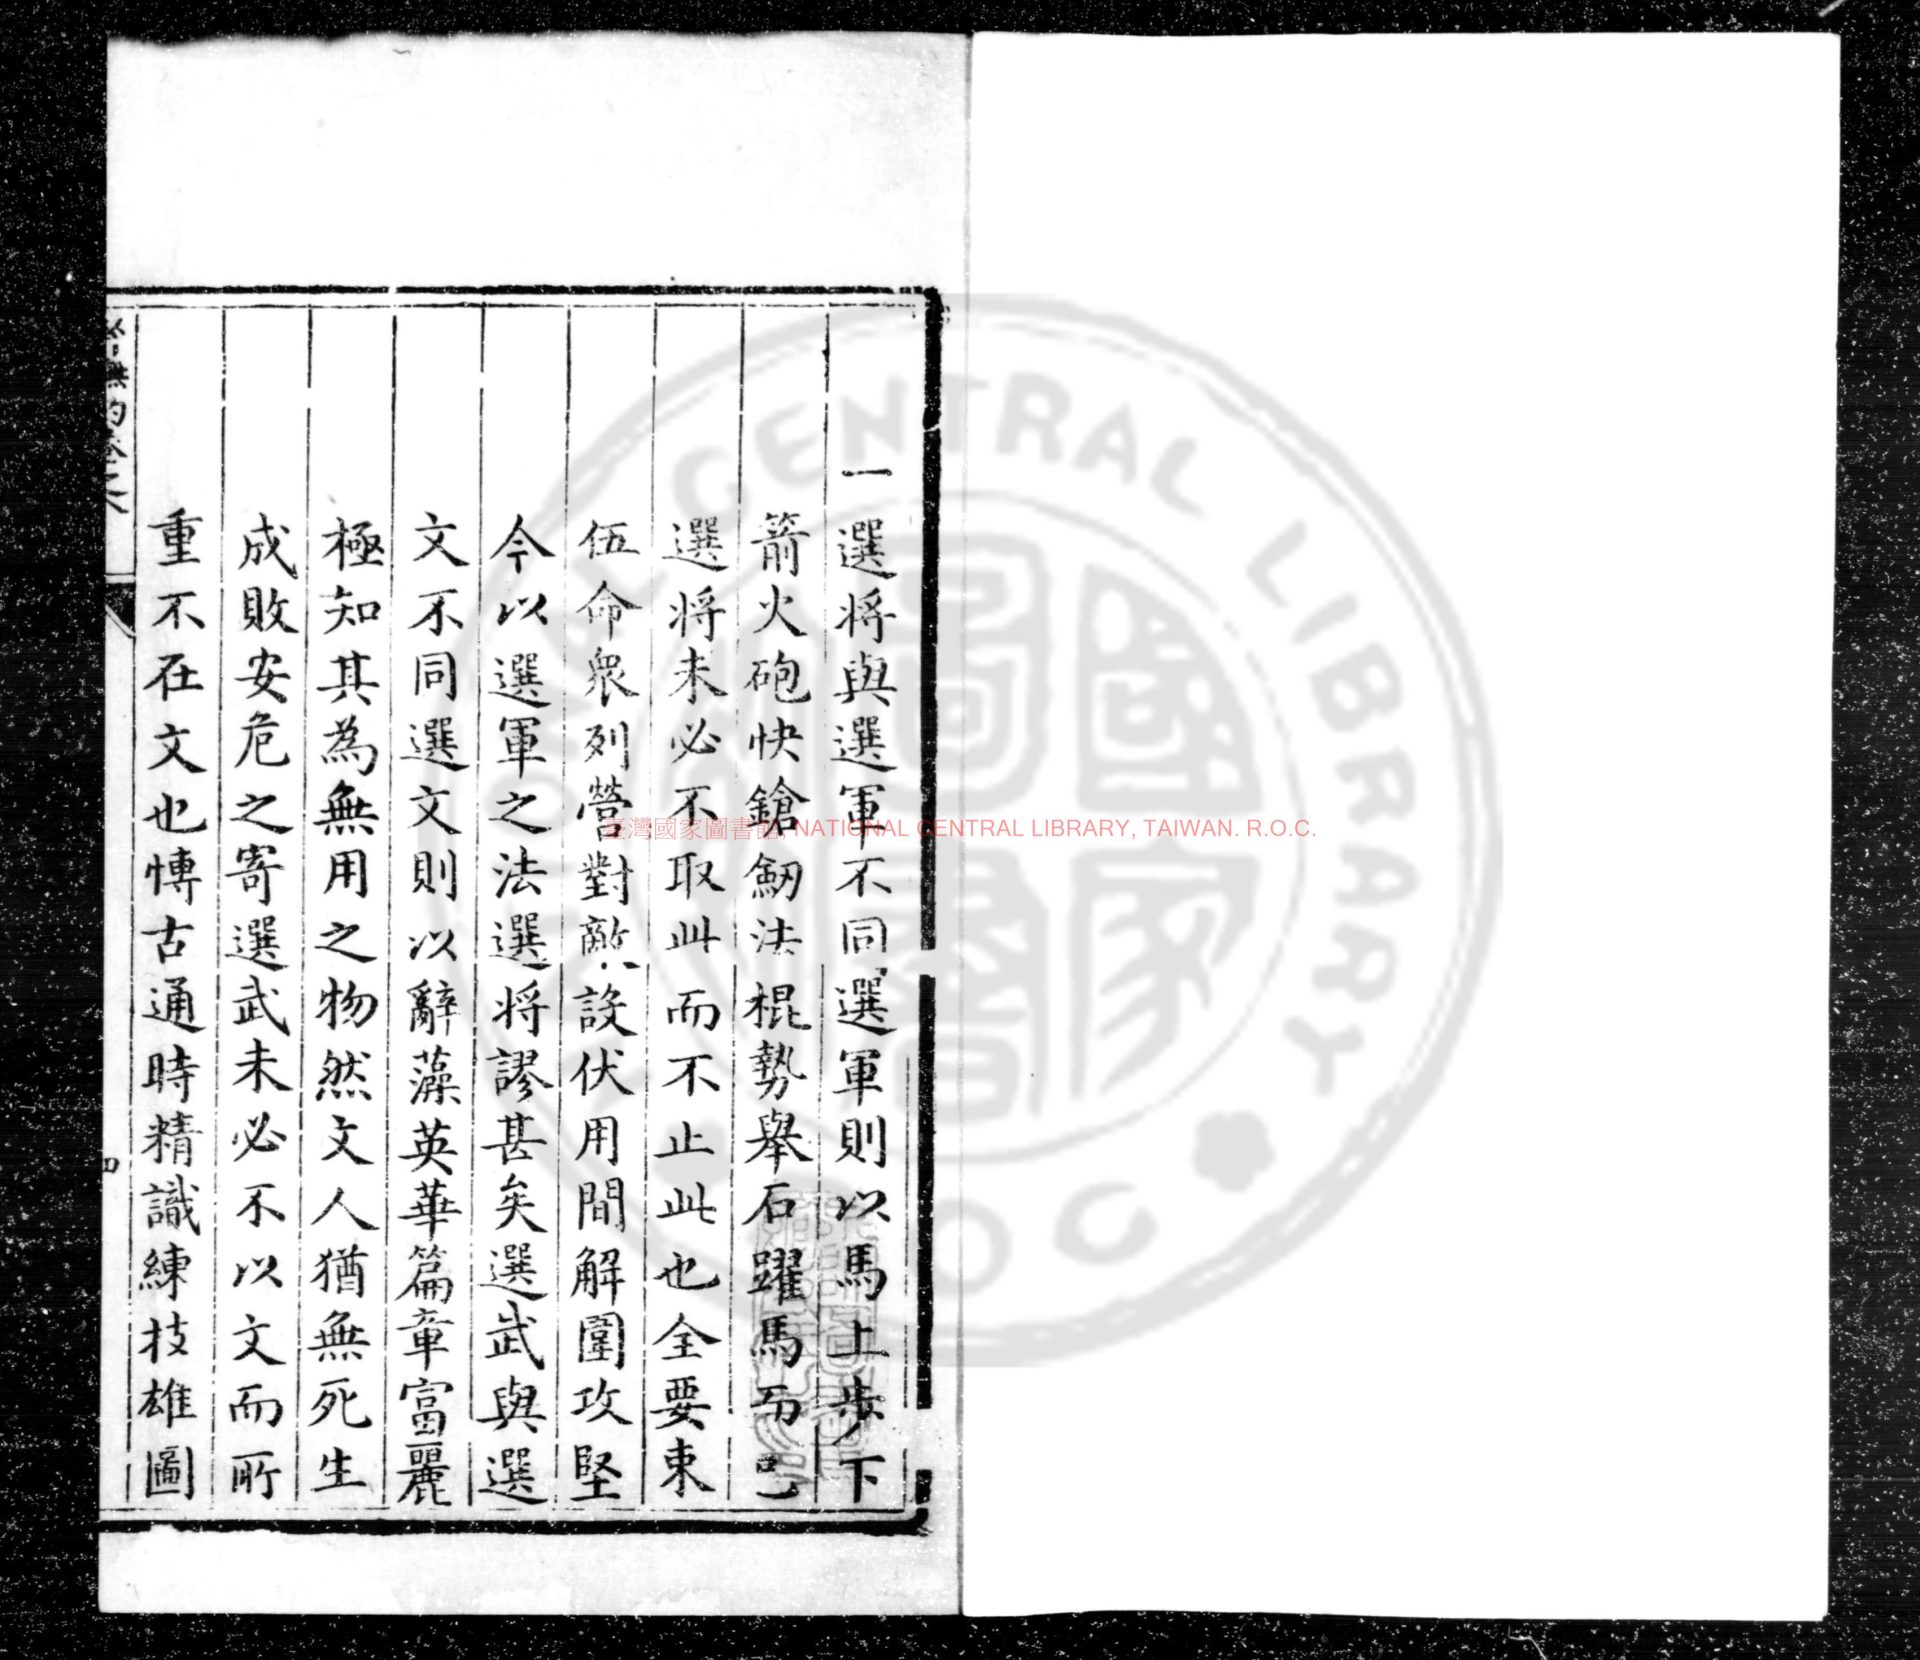 一選將與選軍不同選軍則以馬上步下
箭火砲快鎗劒法棍勢舉石躍馬而已
選將未必不取此而不止此也全要束
伍命衆列營對敵設伏用間解圍攻堅
今以選軍之法選將謬甚矣選武與選
文不同選文則以辭藻英華篇章富麗
極知其為無用之物然文人猶無死生
成敗安危之寄選武未必不以文而所
重不在文也博古通時精識練技雄圖
約卷之六
四
臺灣國家圖書館, NATIONAL CENTRAL LIBRARY, TAIWAN. R.O.C.
CENTRAL LIBRARY
國家圖書